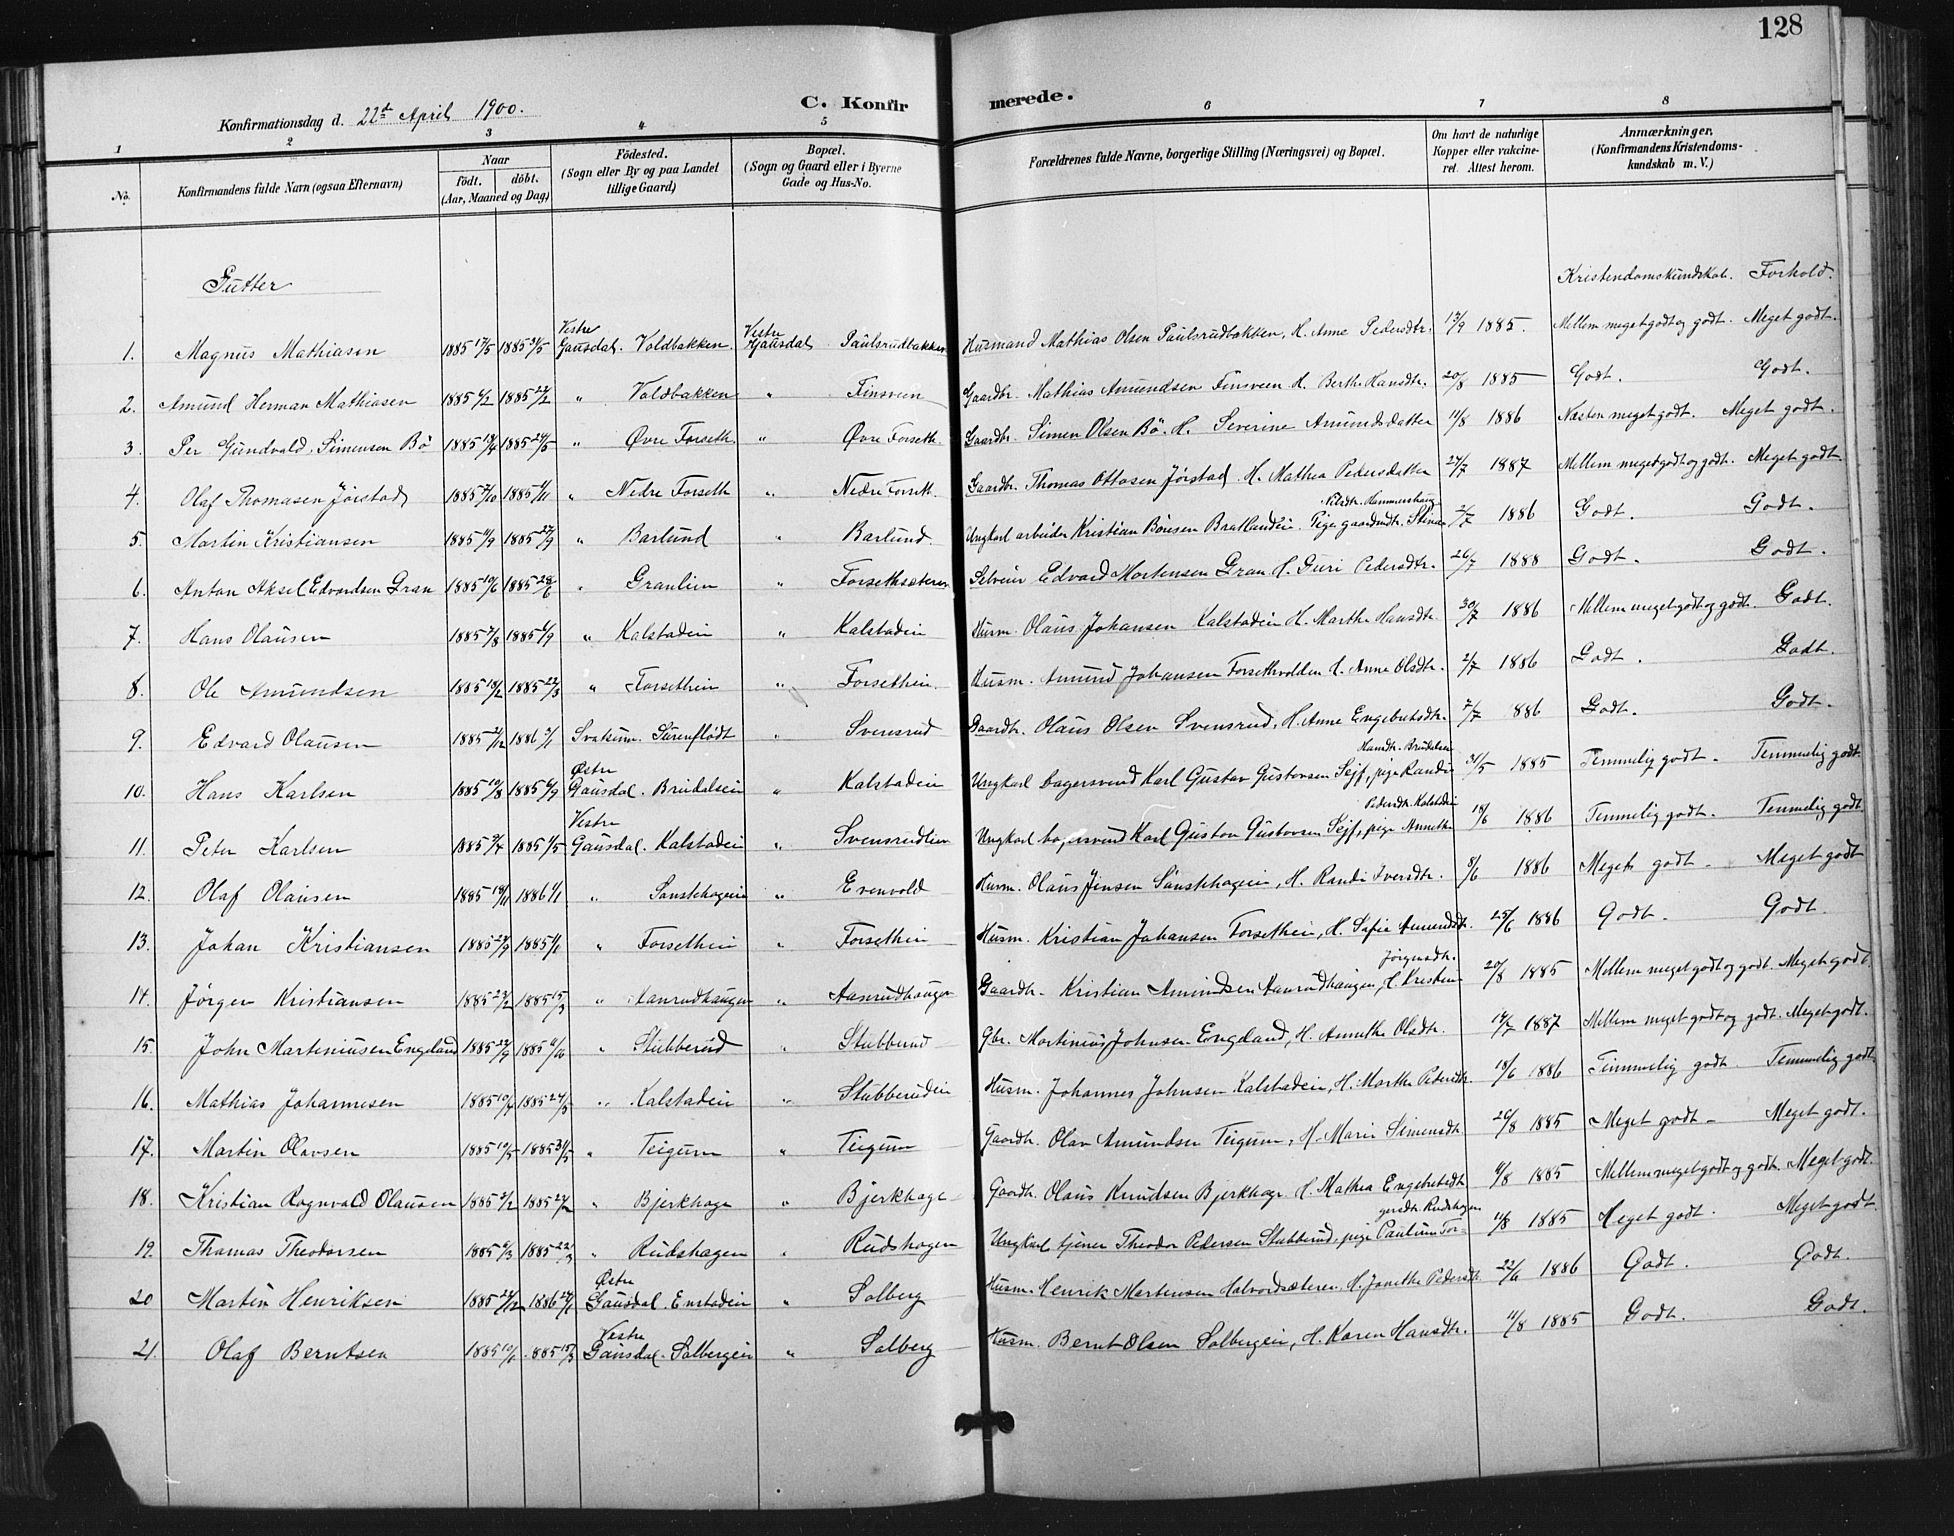 128
C. Konfirmerede.
Konfirmationsdag d. 22de April 1900.
1 2 3 4 5 6 7 8
No. Konfirmandens fulde Navn (ogsaa Efternavn) Naar født. døbt. (Aar, Maaned og Dag) Fødested. (Sogn eller By og paa Landet tillige Gaard) Bopæl. (Sogn og Gaard eller i Byerne Gade og Hus-No. Forældrenes fulde Navne, borgerlige Stilling (Næringsvei) og Bopæl. Om havt de naturlige Kopper eller vakcineret. Attest herom. Anmærkninger. (Konfirmandens Kristendomskundskab m. V.)
Gutter Kristendomskundskab. Forhold.
1. Magnus Mathiasen 1885 17/5 1885 31/5 Vestre Gausdal. Voldbakken Vestre Gausdal Paulsrudbakken Husmand Mathias Olsen Paulsrudbakken, H. Anne Pedersdtr. 13/9 1885. Mellem meget godt og godt. Meget godt.
2. Amund Herman Mathiasen 1885 6/2 1885 22/2 " Voldbakken " Finsveen Gaardbr. Mathias Amundsen Finsveen H. Berthe Hansdtr. 20/8 1885 Godt. Godt.
3. Per Gundvald Simensen Bø 1885 19/4 1885 24/5 " Øvre Forseth " Øvre Forseth. Gaardbr. Simen Olsen Bø. H. Severine Amundsdatter 11/8 1886 Næsten meget godt. Meget godt.
4. Olaf Thomasen Jørstad 1885 7/10 1885 1/11 " Nedre Forseth " Nedre Forseth. Gaardbr. Thomas Ottosen Jørstad H. Mathea Pedersdatter 27/7 1887 Mellem meget godt og godt. Meget godt.
5. Martin Kristiansen 1885 11/9 1885 27/9 " Barlund " Barlund. Ungkarl arbeider Kristian Børesen Bratlandein. Pige gaardmdtr. Stina Nilsdtr. Hammershaug 2/7 1886 Godt. Godt.
6. Anton Aksel Edvardsen Gran 1885 10/6 1885 28/6 " Granlien " Forsethsæteren Selveier Edvard Mortensen Gran H. Guri Pedersdtr. 26/7 1888 Godt. Godt.
7. Hans Olausen 1885 7/8 1885 6/9 " Kalstadein " Kalstadein Husm. Olaus Johansen Kalstadein H. Marthe Hansdtr. 30/7 1886 Mellem meget godt og godt. Godt.
8. Ole Amundsen 1885 18/2 1885 22/3 " Forsethein " Forsethein Husm. Amund Johansen Forsethvolden H. Anne Olsdtr. 2/7 1886 Godt. Godt.
9. Edvard Olausen 1885 2/12 1886 3/1 Svatsum. Sørenflødt " Svensrud Gaardbr. Olaus Olsen Svensrud, H. Anne Engebretsdtr. 2/7 886 Godt. Godt.
10. Hans Karlsen 1885 10/8 1885 6/9 Østre Gausdal. Brudalsein " Kalstadein Ungkarl bagersvend Karl Gustav Gustavsen Sejf, pige Randi Hansdtr. Brudalsein 31/5 1885 Temmelig godt. Temmelig godt.
11. Peter Karlsen 1885 9/4 1885 1/5 Vestre Gausdal. Kalstadein " Svensrudlien Ungkarl bagersvend Karl Gustav Gustavsen Sejf, pige Annethe Pedersdtr. Kalstadein 18/6 1886 Temmelig godt. Temmelig godt
12. Olaf Olausen 1885 18/11 1886 1/1 " Sanstehageein " Evenvold Husm. Olaus Jensen Sanstehageein, H. Randi Iversdtr. 8/6 1886 Meget godt. Meget godt
13. Johan Kristiansen 1885 1885 " Forsethein " Forsethein Husm. Kristian Johansen Forsethein, H. Sofie Amundsdtr. 25/6 1886 Godt. Godt.
14. Jørgen Kristiansen 1885 23/2 1885 15/3 " Aanrudhaugen " Aanrudhaugen Gaardbr. Kristian Amundsen Aanrudhaugen, H. Kristine Jørgensdtr. 20/8 1885 Mellem meget godt og godt. Meget godt.
15. John Martiniusen Engeland 1885 22/9 1885 11/10 " Stubberud " Stubberud Gbr. Martinius Johnsen Engeland, H. Annethe Olsdtr. 14/7 1887 Mellem meget godt og godt. Meget godt.
16. Mathias Johannesen 1885 10/4 1885 24/5 " Kalstadein " Stubberudein Husm. Johannes Johnsen Kalstadein, H. Marthe Pedersdtr. 18/6 1886 Temmelig godt. Temmelig godt
17. Martin Olavsen 1885 10/5 1885 31/5 " Teigum " Teigum Gaardbr. Olav Amundsen Teigum, H. Marie Simensdtr. 26/8 1885 Meget godt. Meget godt.
18. Kristian Ragnvald Olausen 1885 2/2 1885 22/2 " Bjerkhage " Bjerkhage Gaardbr. Olaus Knudsen Bjerkhage H. Mathea Engebretsdt. 11/8 1885 Mellem meget godt og godt. Meget godt.
19. Thomas Theodorsen 1885 6/3 1885 22/3 " Rudshagen " Rudshagen Ungkarl tjener Theodor Pedersen Stubberud, pige Pauline Torgersdtr. Rudshagen 11/8 1885 Meget godt. Meget godt.
20 Martin Henriksen 1885 27/12 1886 24/1 Østre Gausdal. Enstadein " Solberg Husm. Henrik Martinsen Halvordsæteren. H. Janethe Pedersdt. 22/6 1886 Godt. Godt.
21. Olaf Berntsen 1885 10/1 885 15/3 Vestre Gausdal. Solbergein " Solberg Husm. Bernt Olsen Solbergein, H. Karen Hansdtr. 11/8 1885 Godt. Godt.